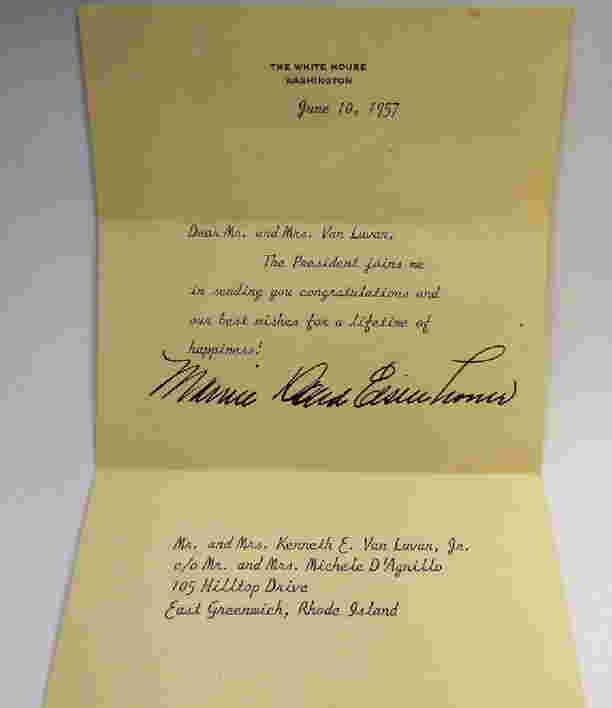 THE WHITE HOUSE
WASHINGTON
June 10, 1957
Dear Mr. and Mrs. Van Luvan,
The President joins me
in sending you congratulations and
our best wishes for a lifetime of
happiness!
Mamie Doud Eisenhower
Mr. and Mrs. Kenneth E. Van Luvan, Jr.
c/o Mr. and Mrs. Michele D'Agnillo
105 Hilltop Drive
East Greenwich, Rhode Island